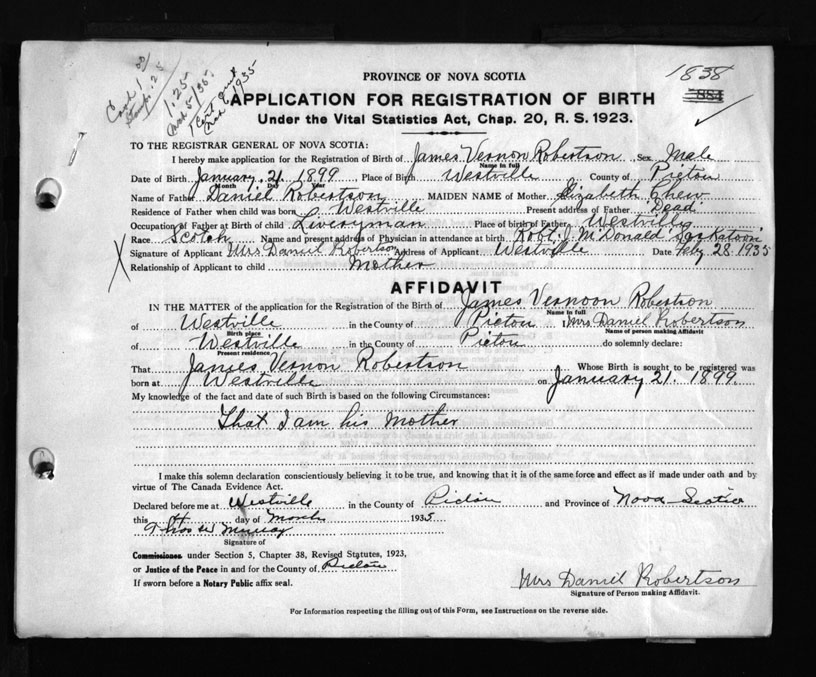 1838
884
1.25
1935
PROVINCE OF NOVA SCOTIA
APPLICATION FOR REGISTRATION OF BIRTH
Under the Vital Statistics Act, Chap. 20, R. S. 1923.
TO THE REGISTRAR GENERAL OF NOVA SCOTIA:
I hereby make application for the Registration of Birth of James Vernon Robertson Sex Male
Name in full
Date of Birth January 21 1899 Place of Birth Westville County of Pictou
Month Day Year
Name of Father Daniel Robertson MAIDEN NAME of Mother Elizabeth Chew
Residence of Father when child was born Westville Present address of Father Dead
Occupation of Father at Birth of child Liveryman Place of birth of Father Westville
Race Scotch Name and present address of Physician in attendance at birth Robt. J. McDonald Saskatoon
Signature of Applicant Mrs Daniel Robertson Address of Applicant Westville Date Feby 28 1935
Relationship of Applicant to child Mother
AFFIDAVIT
IN THE MATTER of the application for the Registration of the Birth of James Vernoon Robertson
Name in full
of Westville in the County of Pictou I Mrs Daniel Robertson
Birth place Name of person making Affidavit
of Westville in the County of Pictou do solemnly declare:
Present residence
That James Vernon Robertson Whose Birth is sought to be registered was
born at Westville on January 21. 1899.
My knowledge of the fact and date of such Birth is based on the following Circumstances:
That I am his Mother
I make this solemn declaration conscientiously believing it to be true, and knowing that it is of the same force and effect as if made under oath and by
virtue of The Canada Evidence Act.
Declared before me at Westville in the County of Pictou and Province of Nova Scotia
this day of March 1935
Murray
Signature of
Commissioner under Section 5, Chapter 38, Revised Statutes, 1923,
or Justice of the Peace in and for the County of Pictou
If sworn before a Notary Public affix seal.
Mrs Daniel Robertson
Signature of Person making Affidavit.
For Information respecting the filling out of this Form, see Instructions on the reverse side.